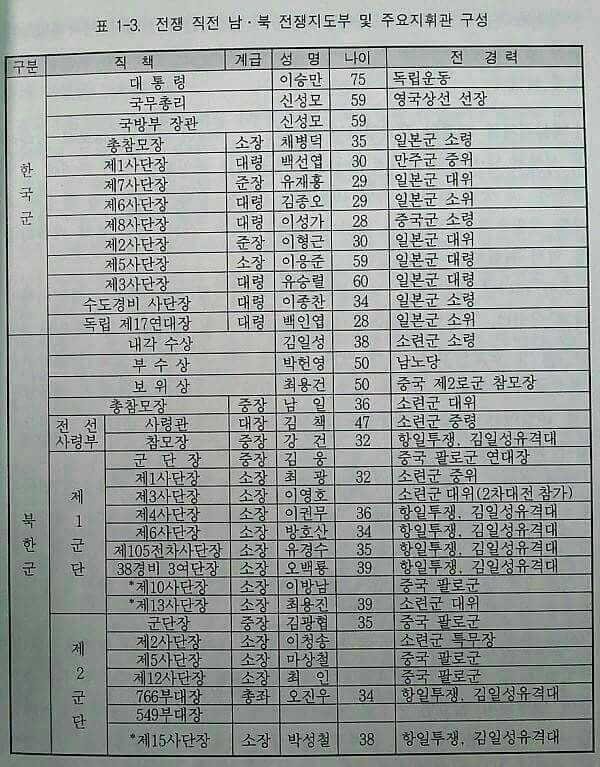 표 1-3. 전쟁 직전 남·북 전쟁지도부 및 주요지휘관 구성
구분 직 책 계급 성 명 나이 전 경 력
한국군
대 통 령 이승만 75 독립운동
국무총리 신성모 59 영국상선 선장
국방부 장관 신성모 59
총참모장 소장 채병덕 35 일본군 소령
제1사단장 대령 백선엽 30 만주군 중위
제7사단장 준장 유재흥 29 일본군 대위
제6사단장 대령 김종오 29 일본군 소위
제8사단장 대령 이성가 28 중국군 소령
제2사단장 준장 이형근 30 일본군 대위
제5사단장 소장 이응준 59 일본군 대령
제3사단장 대령 유승렬 60 일본군 대령
수도경비 사단장 대령 이종찬 34 일본군 소령
독립 제17연대장 대령 백인엽 28 일본군 소위
북한군
내각 수상 김일성 38 소련군 소령
부 수 상 박헌영 50 남노당
보 위 상 최용건 50 중국 제2로군 참모장
총참모장 중장 남 일 36 소련군 대위
전 선 사령부
사령관 대장 김 책 47 소련군 중령
참모장 중장 강 건 32 항일투쟁, 김일성유격대
제1군단
군 단 장 중장 김 웅 중국 팔로군 연대장
제1사단장 소장 최 광 32 소련군 중위
제3사단장 소장 이영호 소련군 대위(2차대전 참가)
제4사단장 소장 이권무 36 항일투쟁, 김일성유격대
제6사단장 소장 방호산 34 항일투쟁, 김일성유격대
제105전차사단장 소장 유경수 35 항일투쟁, 김일성유격대
38경비 3여단장 소장 오백룡 39 항일투쟁, 김일성유격대
*제10사단장 소장 이방남 중국 팔로군
*제13사단장 소장 최용진 39 소련군 대위
제2군단
군단장 중장 김광협 35 중국 팔로군
제2사단장 소장 이청송 소련군 특무장
제5사단장 소장 마상철 중국 팔로군
제12사단장 소장 최 인 중국 팔로군
766부대장 총좌 오진우 34 항일투쟁, 김일성유격대
549부대장
*제15사단장 소장 박성철 38 항일투쟁, 김일성유격대